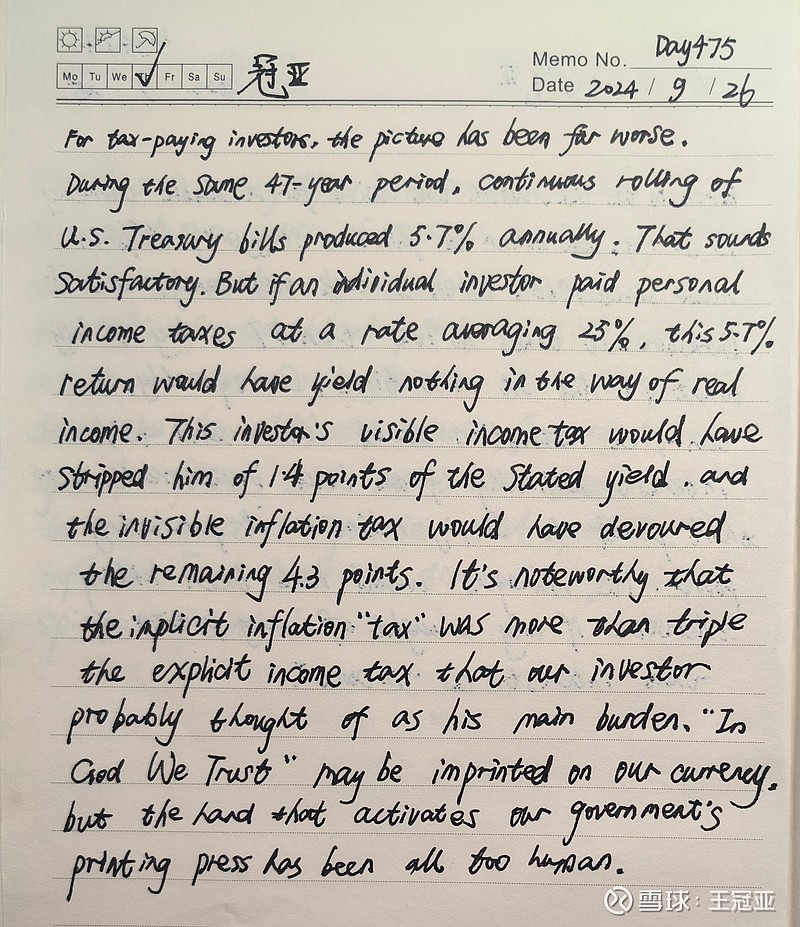 Mo Tu We Th Fr Sa Su
冠亚
Memo No. Day475
Date 2024 / 9 / 26
For tax-paying investors, the picture has been far worse.
During the same 47-year period, continuous rolling of
U.S. Treasury bills produced 5.7% annually. That sounds
satisfactory. But if an individual investor paid personal
income taxes at a rate averaging 25%, this 5.7%
return would have yield nothing in the way of real
income. This investor's visible income tax would have
stripped him of 1.4 points of the stated yield, and
the invisible inflation tax would have devoured
the remaining 4.3 points. It's noteworthy that
the implicit inflation "tax" was more than triple
the explicit income tax that our investor
probably thought of as his main burden. "In
God We Trust" may be imprinted on our currency,
but the hand that activates our government's
printing press has been all too human.
雪球：王冠亚